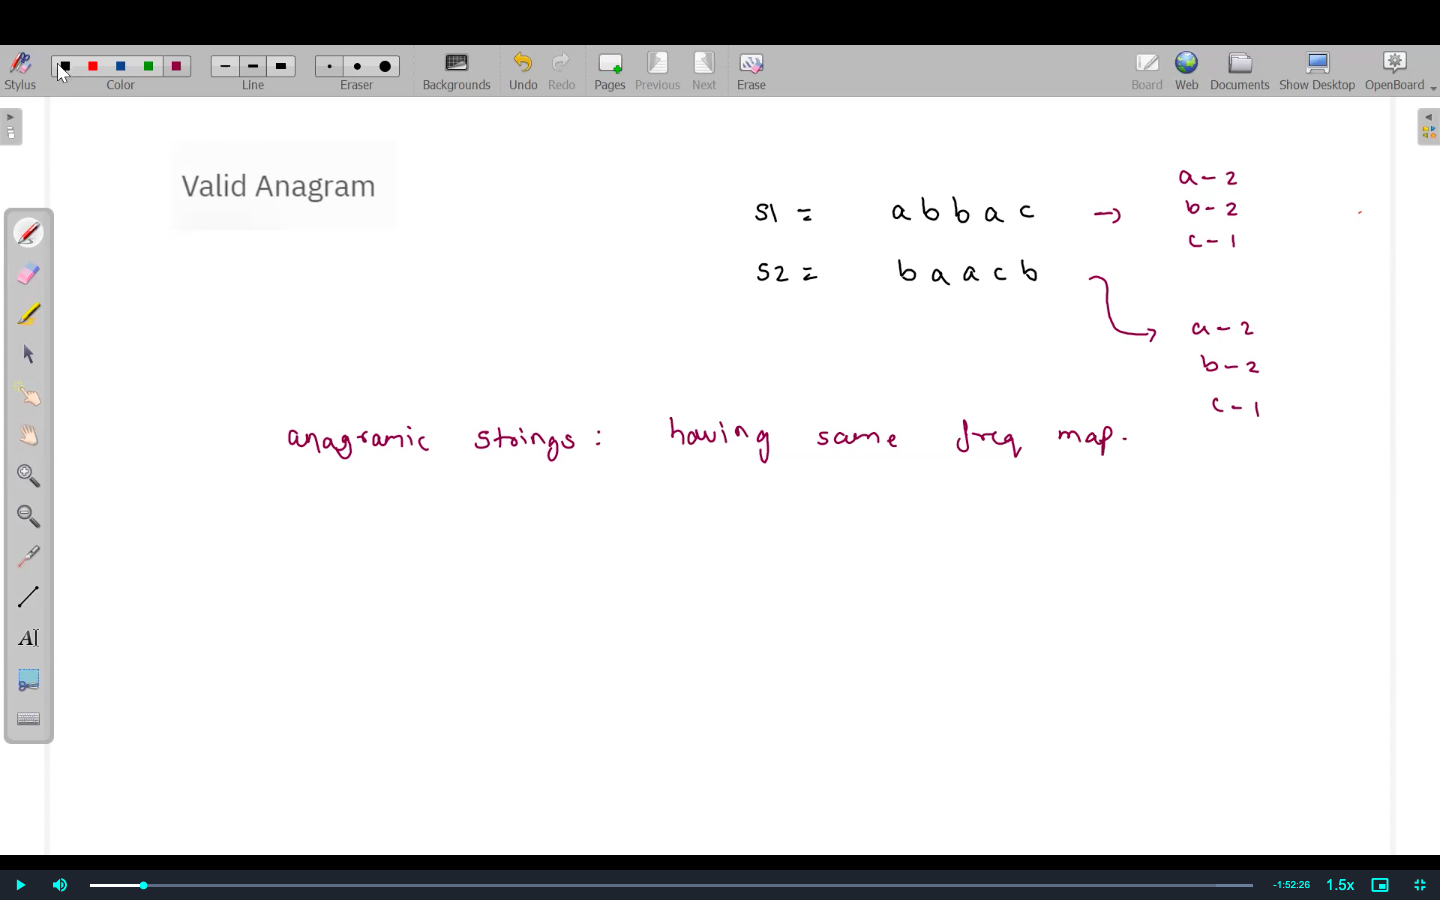 Stylus
Color
Line
Eraser
Backgrounds
Undo
Redo
Pages
Previous
Next
Erase
Board
Web
Documents
Show Desktop
OpenBoard
Valid Anagram
S1 = a b b a c → a - 2
b - 2
c - 1
S2 = b a a c b → a - 2
b - 2
c - 1
anagramic strings : having same freq map.
AI
-1:52:26
1.5x